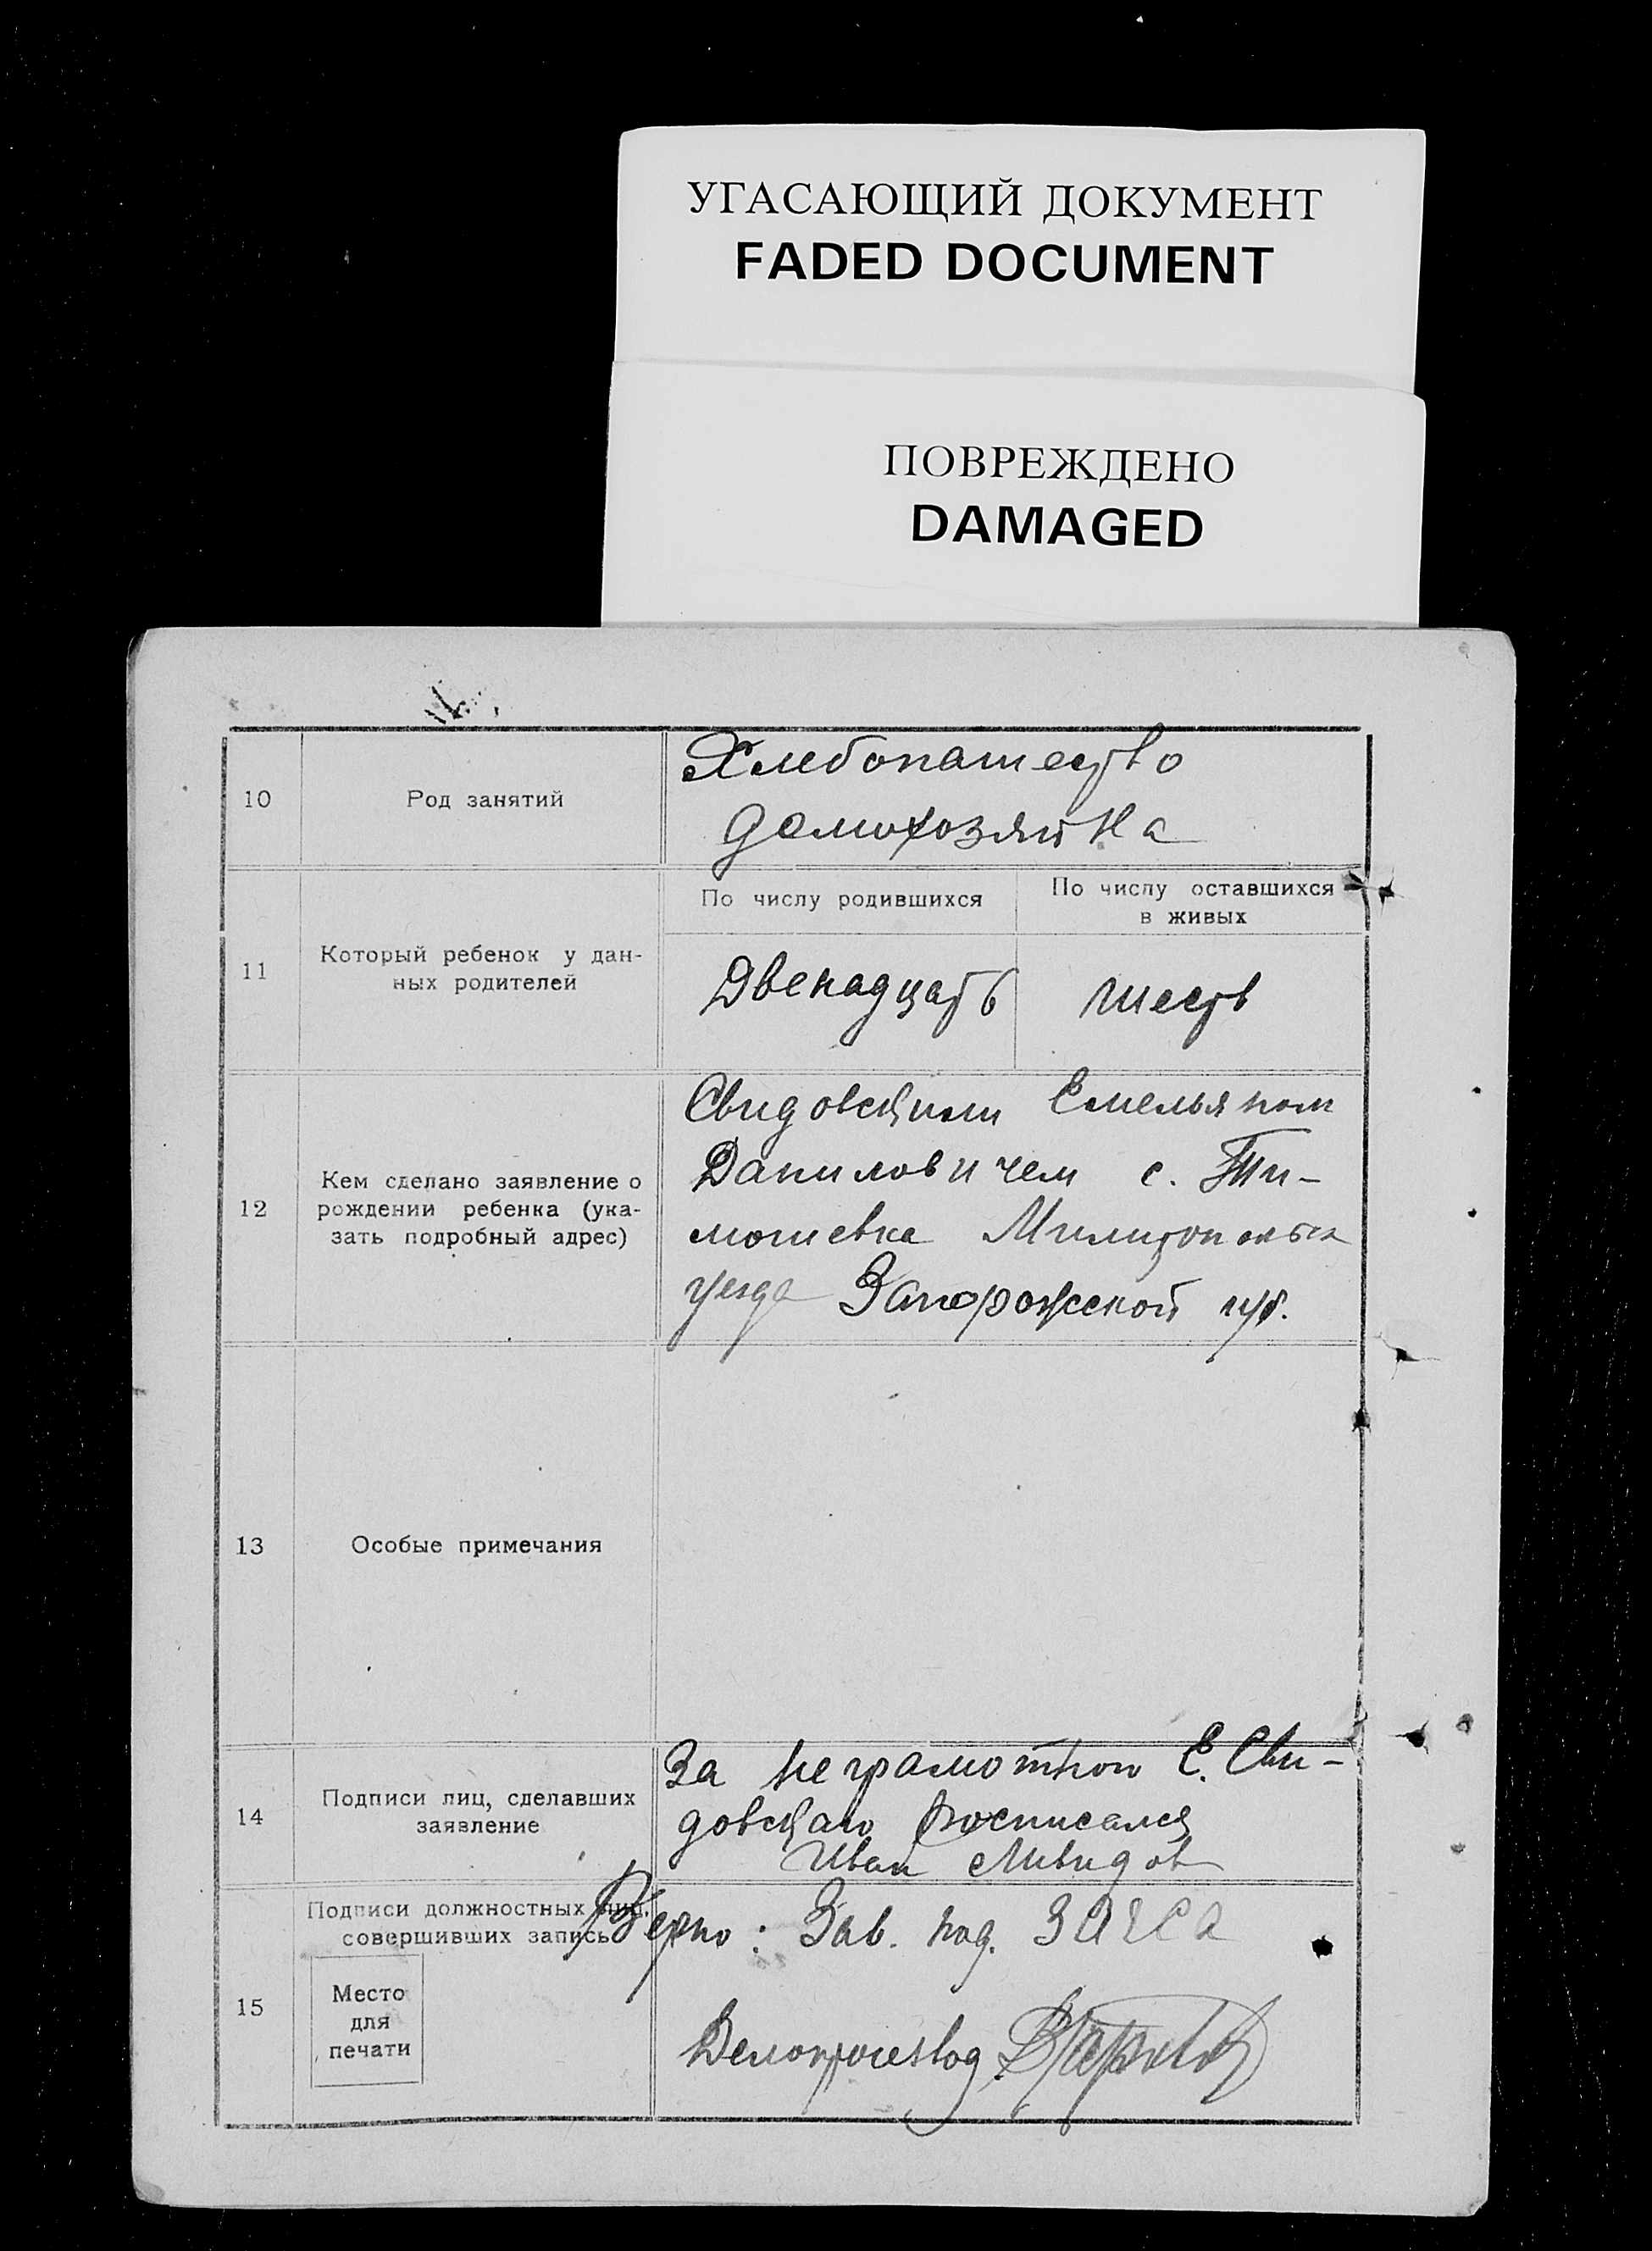 УГАСАЮЩИЙ ДОКУМЕНТ
FADED DOCUMENT
ПОВРЕЖДЕНО
DAMAGED
10
Род занятий
Хлебопашество
домохозяйка
11
Который ребенок у дан-
ных родителей
По числу родившихся
По числу оставшихся
в живых
Двенадцать
шесть
12
Кем сделано заявление о
рождении ребенка (ука-
зать подробный адрес)
Свидовским Емельяном
Даниловичем с. Ти-
мошевка Милитопольск
уезда Запорожской губ.
13
Особые примечания
14
Подписи лиц, сделавших
заявление
За неграмотного Е. Сви-
довского росписался
Иван
15
Подписи должностных лиц,
совершивших запись
Место
для
печати
Верно: Зав. под. ЗАГСа
Делопроизвод.